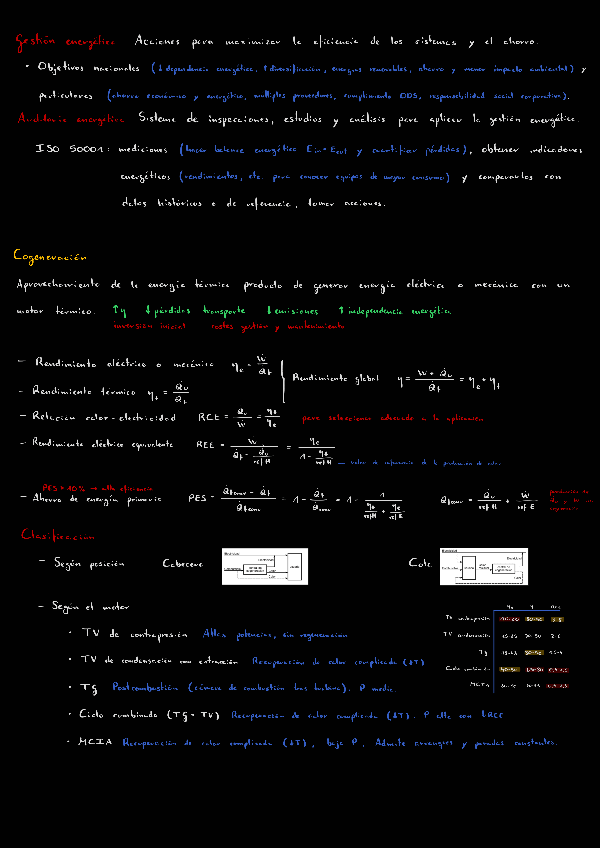 Gestión energética Acciones para maximizar la eficiencia de los sistemas y el ahorro.
• Objetivos nacionales (↓ dependencia energética, ↑ diversificación, energías renovables, ahorro y menor impacto ambiental) y
particulares (ahorro económico y energético, múltiples proveedores, cumplimiento ODS, responsabilidad social corporativa).
Auditoría energética Sistema de inspecciones, estudios y análisis para aplicar la gestión energética.
ISO 50001: mediciones (hacer balance energético Ein = Eout y cuantificar pérdidas), obtener indicadores
energéticos (rendimientos, etc. para conocer equipos de mayor consumo) y compararlos con
datos históricos o de referencia, tomar acciones.
Cogeneración
Aprovechamiento de la energía térmica producto de generar energía eléctrica o mecánica con un
motor térmico. ↑η ↓ pérdidas transporte ↓ emisiones ↑ independencia energética
inversión inicial costes gestión y mantenimiento
— Rendimiento eléctrico o mecánico ηe = Ẇ/Q̇f
Rendimiento global η = (Ẇ + Q̇u)/Q̇f = ηe + ηt
— Rendimiento térmico ηt = Q̇u/Q̇f
— Relación calor-electricidad RCE = Q̇u/Ẇ = ηt/ηe para seleccionar adecuado a la aplicación
— Rendimiento eléctrico equivalente REE = Ẇ/(Q̇f - Q̇u/ref H) = ηe/(1 - ηt/ref H) valor de referencia de la producción de calor
PES > 10% → alta eficiencia
— Ahorro de energía primaria PES = (Q̇fconv - Q̇f)/Q̇fconv = 1 - Q̇f/Q̇fconv = 1 - 1/(ηt/ref H + ηe/ref E) Q̇fconv = Q̇u/ref H + Ẇ/ref E
Clasificación
— Según posición Cabecera Cola
— Según el motor
• TV de contrapresión Altas potencias, sin regeneración
• TV de condensación con extracción Recuperación de calor complicada (ΔT)
• Tg Postcombustión (cámara de combustión tras turbina). P media.
• Ciclo combinado (Tg + TV) Recuperación de calor complicada (ΔT). P alta con
• MCIA Recuperación de calor complicada (ΔT), baja P. Admite arranques y paradas constantes.